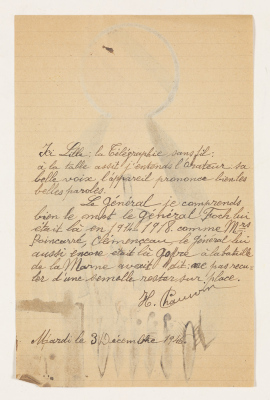 Ici Lille: la Télégraphie sans fil:
à la table assit j'entends l'Orateur sa
belle voix l'appareil prononce bien les
belles paroles.
Le Général je comprends
bien le mot le Général Foch lui
était là en 1914 1918 comme Mrs
Poincarré, Clémenceau le Général lui
aussi encore était là Jofre à la bataille
de la Marne avait dit ne pas recu-
ler d'une semelle rester sur place.
H.
Mardi le 3 Décembre